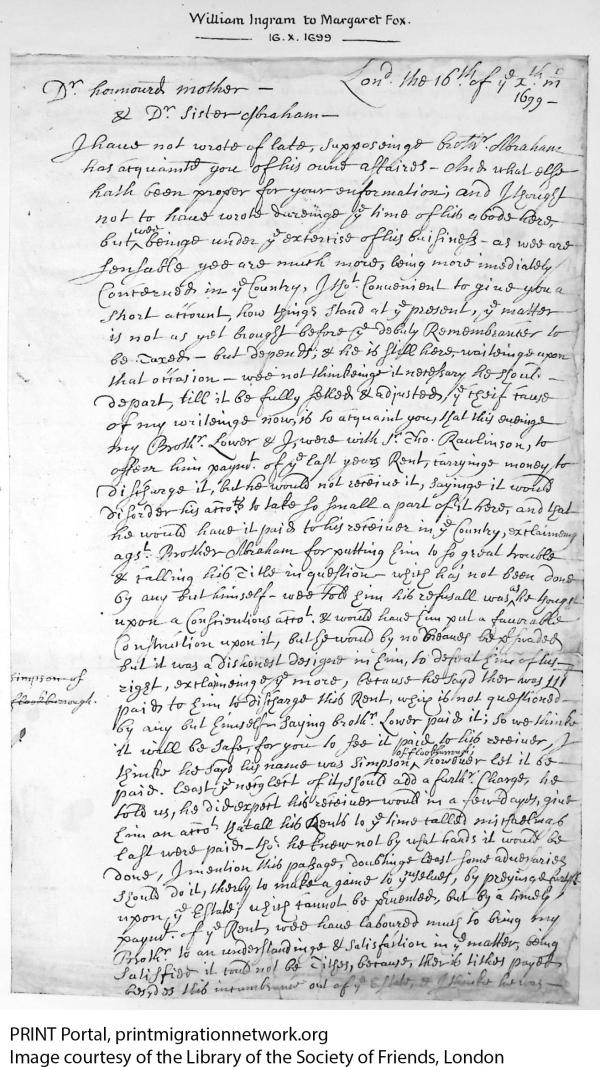 William Ingram to Margaret Fox.
16. X. 1699
Lond. the 16th of ye Xth m
1699 -
Dr. honnoured mother -
& Dr. Sister Abraham -
I have not wrote of late, supposeinge brothr. Abraham
has acquainted you of his owne affaires - And what else
hath been proper for your enformation, and I thought
not to have wrote dureinge ye time of his abode here,
but wee beinge under ye extercise of his buisiness - as wee are
sensable yee are much more, being more imediately
Concerned in ye Country, I thot. Convenient to give you a
short account, how things stand at ye present, ye matter
is not as yet brought before ye debuty Remembrancer to
be Taxed - but depends; & he is still here, waiteinge upon
that occasion - wee not thinkeinge it necessary he should -
depart, till it be fully setled & adjusted, ye cheif cause
of my writeinge now, is to acquaint you, that this eveinge
my Brothr. Lower & I, were with Sr. Tho. Rawlinson, to
offerr him paymt. of ye last years Rent, carryinge money to
discharge it, but he would not receive it, sayinge it would
disorder his accots. to take so small a part of it here, and that
he would have it paid to his receiver in ye Country, exclaimeing
agst. Brother Abraham for putting him to so great trouble
& calling his Title in question - which has not been done
by any but himself - wee told him his refusall was as he thought
upon a Conscientious accot. & would have him put a favorable
Construction upon it, but he would by no Meanes be perswaded
but it was a dishonest designe in him, to defeat him of his
Simpson of
Flookburrough.
right, exclaimeinge ye more, because he sayd ther was
paid to him to discharge this Rent, which is not questioned
by any but himself - Saying brothr. Lower paid it; so we thinke
it will be safe, for you to see it paid to his receiver, I
of Flookburrough
thinke he sayd his name was Simpson, however let it be -
paid. least ye neglect of it, should add a furthr. Charge, he
told us, he did expect his receiver would in a few dayes, give
him an accot. that all his Rents to ye time called michaelmas
last were paid - tho: he knew not by what hands it would be
done, I mention this passage, doubtinge least some adversaries
should do it, therby to make a game to ymselves, by preyinge furthr.
upon ye Estate, which cannot be prvented, but by a timely
paymt. of ye Rent, wee have laboured much to bring my
Brothr. to an understandinge & satisfaction in ye matter, being
satisfied it could not be Tithes, because, ther is tithes payed,
besydes this incumbrance out of ye Estate, & I thinke he was -
PRINT Portal, printmigrationnetwork.org
Image courtesy of the Library of the Society of Friends, London